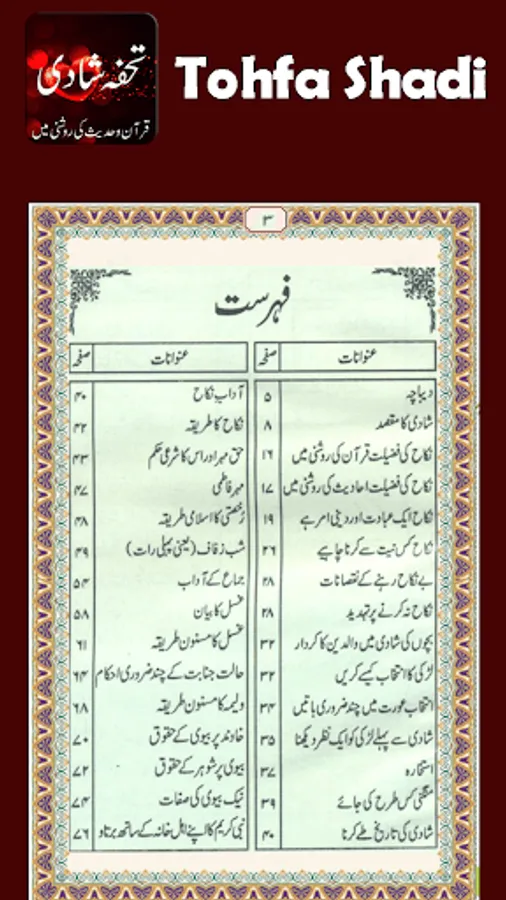 تحفہ شادی
قرآن و حدیث کی روشنی میں
Tohfa Shadi
۳
فہرست
عنوانات صفحہ
دیباچہ ۵
شادی کا مقصد ۸
نکاح کی فضیلت قرآن کی روشنی میں ۱۶
نکاح کی فضیلت احادیث کی روشنی میں ۱۷
نکاح ایک عبادت اور دینی امر ہے ۱۹
نکاح کس نیت سے کرنا چاہیے ۲۶
بے نکاح رہنے کے نقصانات ۲۸
نکاح نہ کرنے پر تہدید ۲۸
بچوں کی شادی میں والدین کا کردار ۳۲
لڑکی کا انتخاب کیسے کریں ۳۲
انتخاب عورت میں چند ضروری باتیں ۳۴
شادی سے پہلے لڑکی کو ایک نظر دیکھنا ۳۵
استخارہ ۳۷
منگنی کس طرح کی جائے ۳۹
شادی کی تاریخ طے کرنا ۴۰
عنوانات صفحہ
آداب نکاح ۴۰
نکاح کا طریقہ ۴۲
حق مہر اور اس کا شرعی حکم ۴۳
مہر فاطمی ۴۷
رخصتی کا اسلامی طریقہ ۴۸
شب زفاف (یعنی پہلی رات) ۴۹
جماع کے آداب ۵۴
غسل کا بیان ۵۸
غسل کا مسنون طریقہ ۶۱
حالت جنابت کے چند ضروری احکام ۶۴
ولیمہ کا مسنون طریقہ ۶۸
خاوند پر بیوی کے حقوق ۷۰
بیوی پر شوہر کے حقوق ۷۲
نیک بیوی کی صفات ۷۴
نبی کریم کا اپنے اہل خانہ کے ساتھ برتاو ۷۶